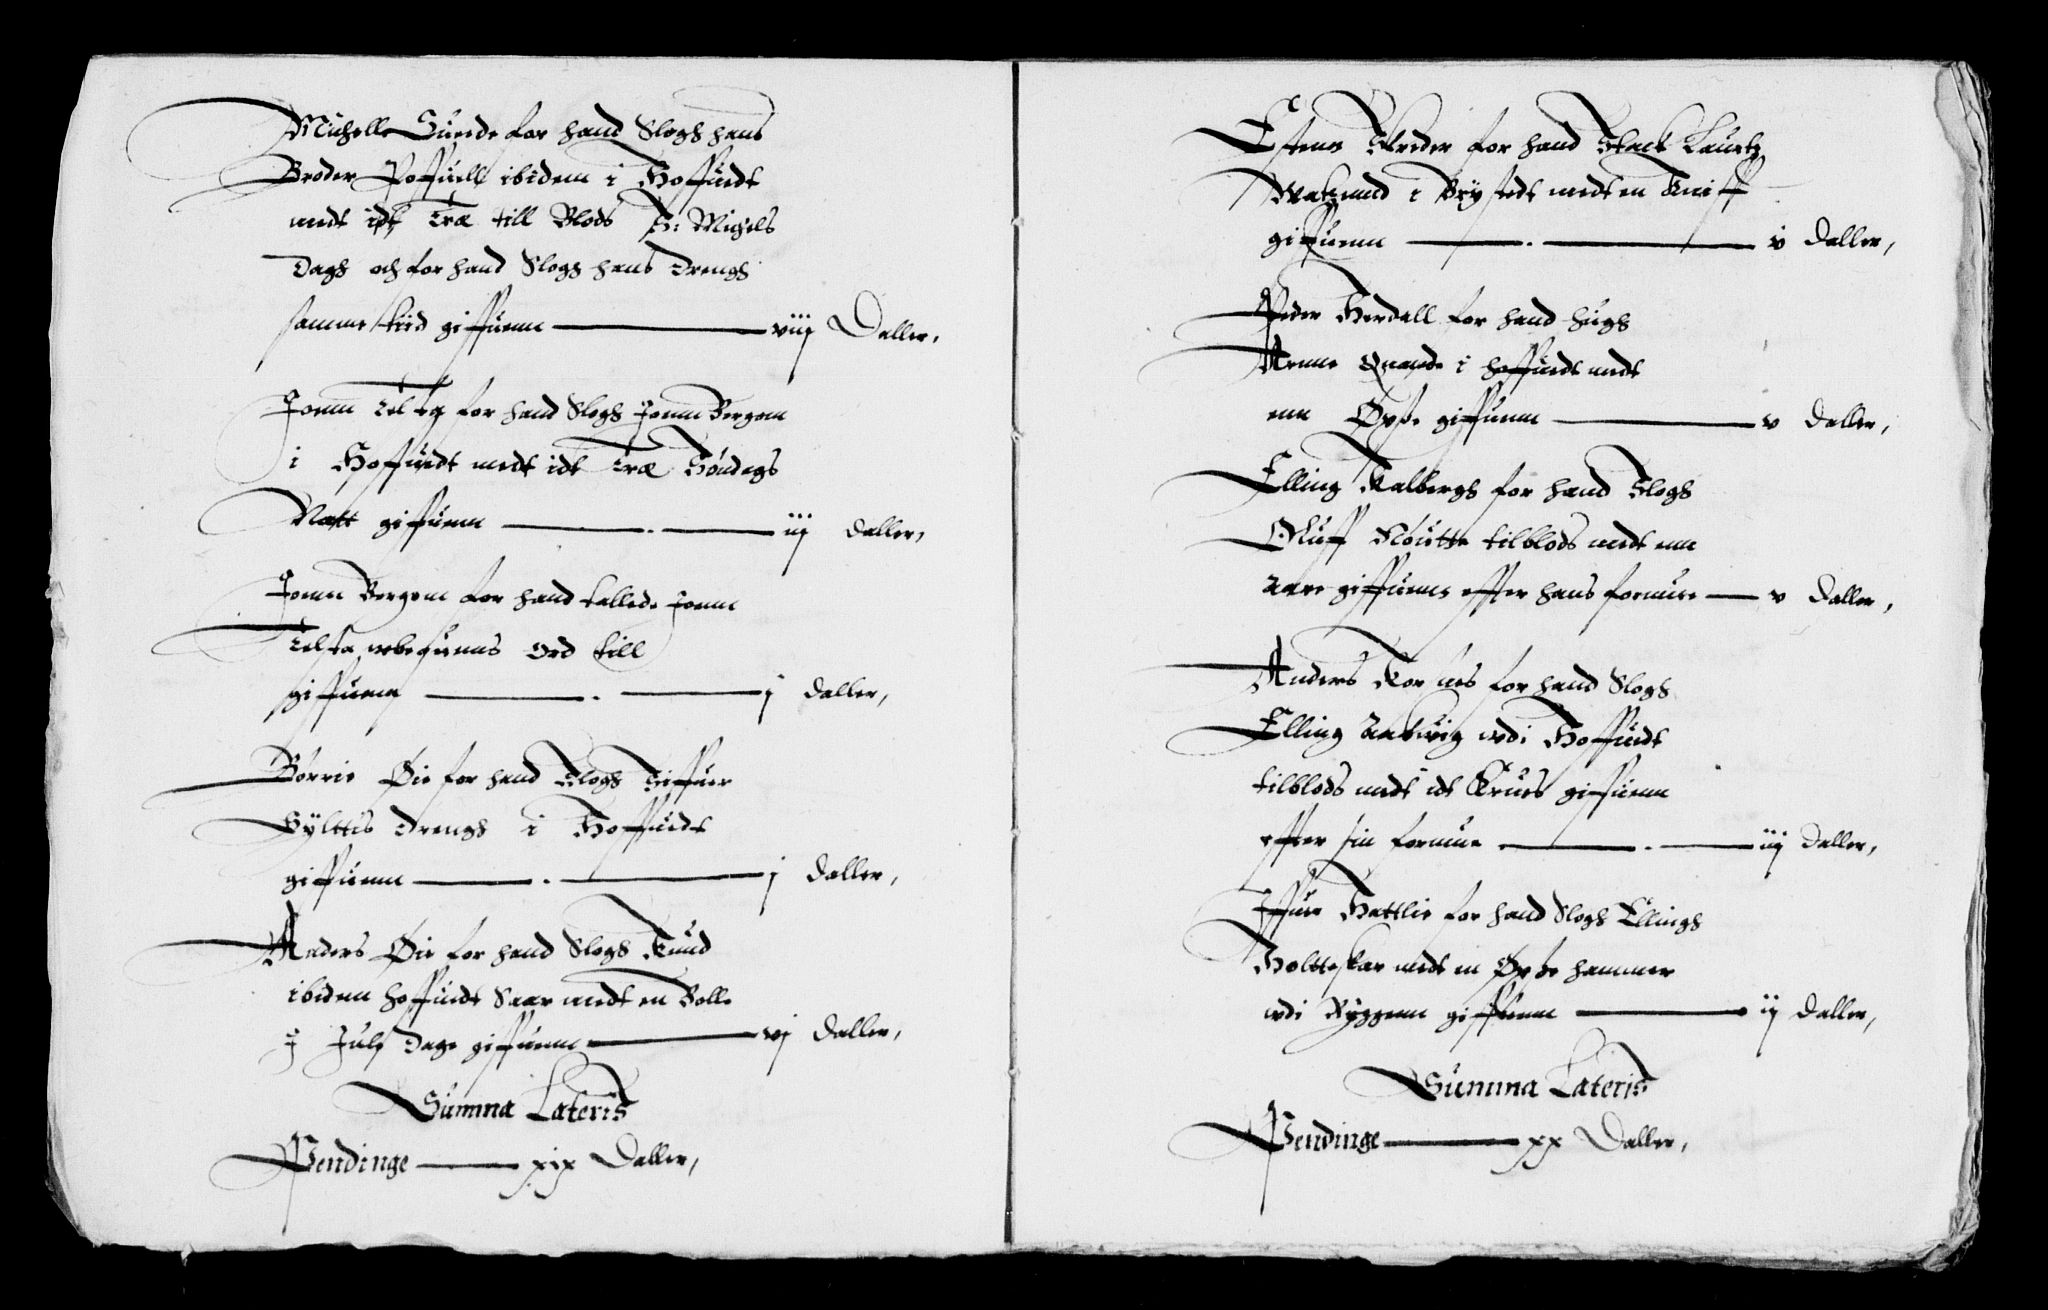 Michell Sunde for hand Slogh hans
Broder Poffuell ibidem i Hoffuedt
medt idt Træ till Blods S: Michels
Dagh och for hand Slogh hans Drengh
samme tiid giffuenn — viij Daller,
Joenn Telta for hand Slogh Joenn Bergem
i Hoffuedt medt idt Træ Søndags
Natt giffuenn — iij daller,
Joenn Bergem for hand kallede Joenn
Telta ubequems Ord till
giffuenn — j daller,
Børrie Øie for hand Slogh Siffuer
Hÿlttis drengh i Hoffuedt
giffuenn — j daller,
Anders Øie for hand Slogh Knud
ibidem hoffuedt Saar medt en Bolle
j Jule Dage giffuenn — vj daller,
Summa Lateris
Pendinge — xix Daller,
Estenn Skreder for hand Stack Lauritz
i Brÿstedt medt en Kniff
giffuenn — v daller,
Peder Herdall for hand hugh
Arnne Quande i hoffuedt medt
enn Øxse giffuenn — v daller,
Elling Kalbergh for hand Slogh
Oluff tilblods medt enn
Aare giffuenn effter hans formue — v daller,
Anders Kornes for hand Slogh
Elling Aakuig udi Hoffuedt
tilblods medt idt Kruus giffuenn
effter sin formue — iij daller,
Iffuer Hattlie for hand Slogh Ellingh
Holtteskar medt en Øxse hammer
udi Ryggenn giffuenn — ij daller,
Summa Lateris
Pendinge — xx Daller,